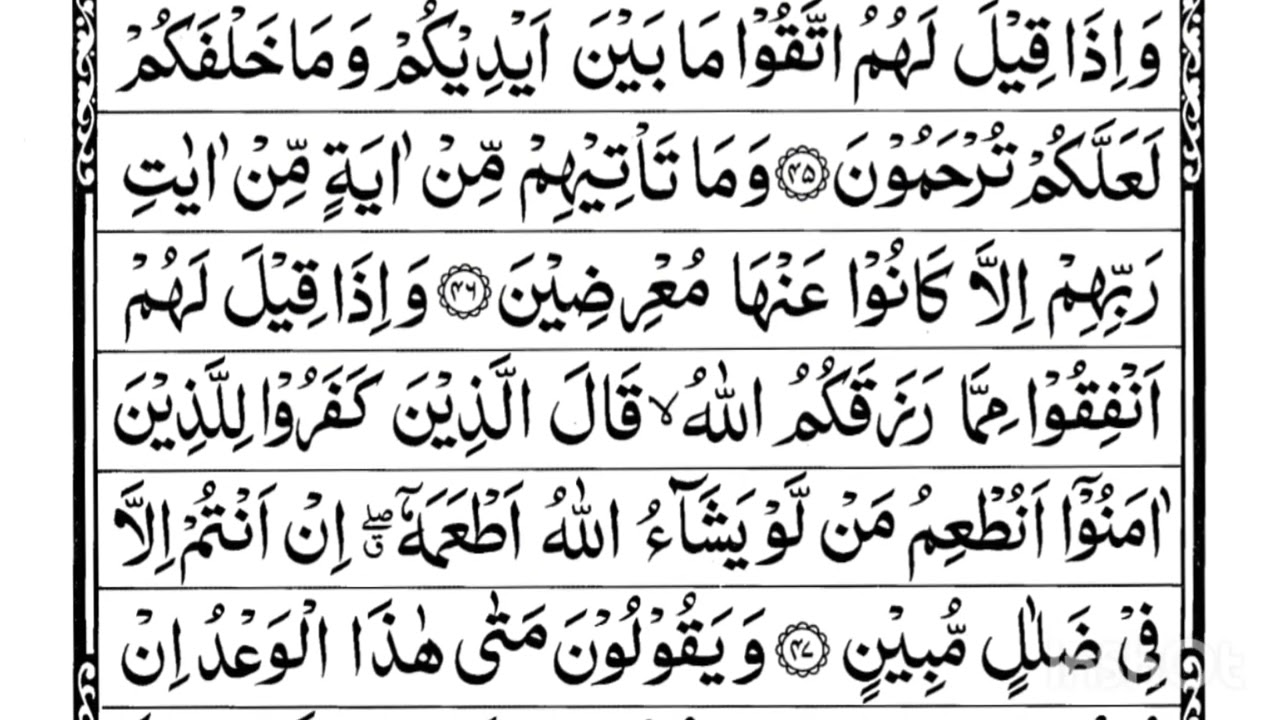 وَاِذَا قِيْلَ لَهُمُ اتَّقُوْا مَا بَيْنَ اَيْدِيْكُمْ وَمَا خَلْفَكُمْ
لَعَلَّكُمْ تُرْحَمُوْنَ ۝۴۵ وَمَا تَاْتِيْهِمْ مِّنْ اٰيَةٍ مِّنْ اٰيٰتِ
رَبِّهِمْ اِلَّا كَانُوْا عَنْهَا مُعْرِضِيْنَ ۝۴۶ وَاِذَا قِيْلَ لَهُمْ
اَنْفِقُوْا مِمَّا رَزَقَكُمُ اللّٰهُ ۙ قَالَ الَّذِيْنَ كَفَرُوْا لِلَّذِيْنَ
اٰمَنُوْۤا اَنُطْعِمُ مَنْ لَّوْ يَشَآءُ اللّٰهُ اَطْعَمَهٗۤ ۖ ق اِنْ اَنْتُمْ اِلَّا
فِيْ ضَلٰلٍ مُّبِيْنٍ ۝۴۷ وَيَقُوْلُوْنَ مَتٰى هٰذَا الْوَعْدُ اِنْ
InShOt